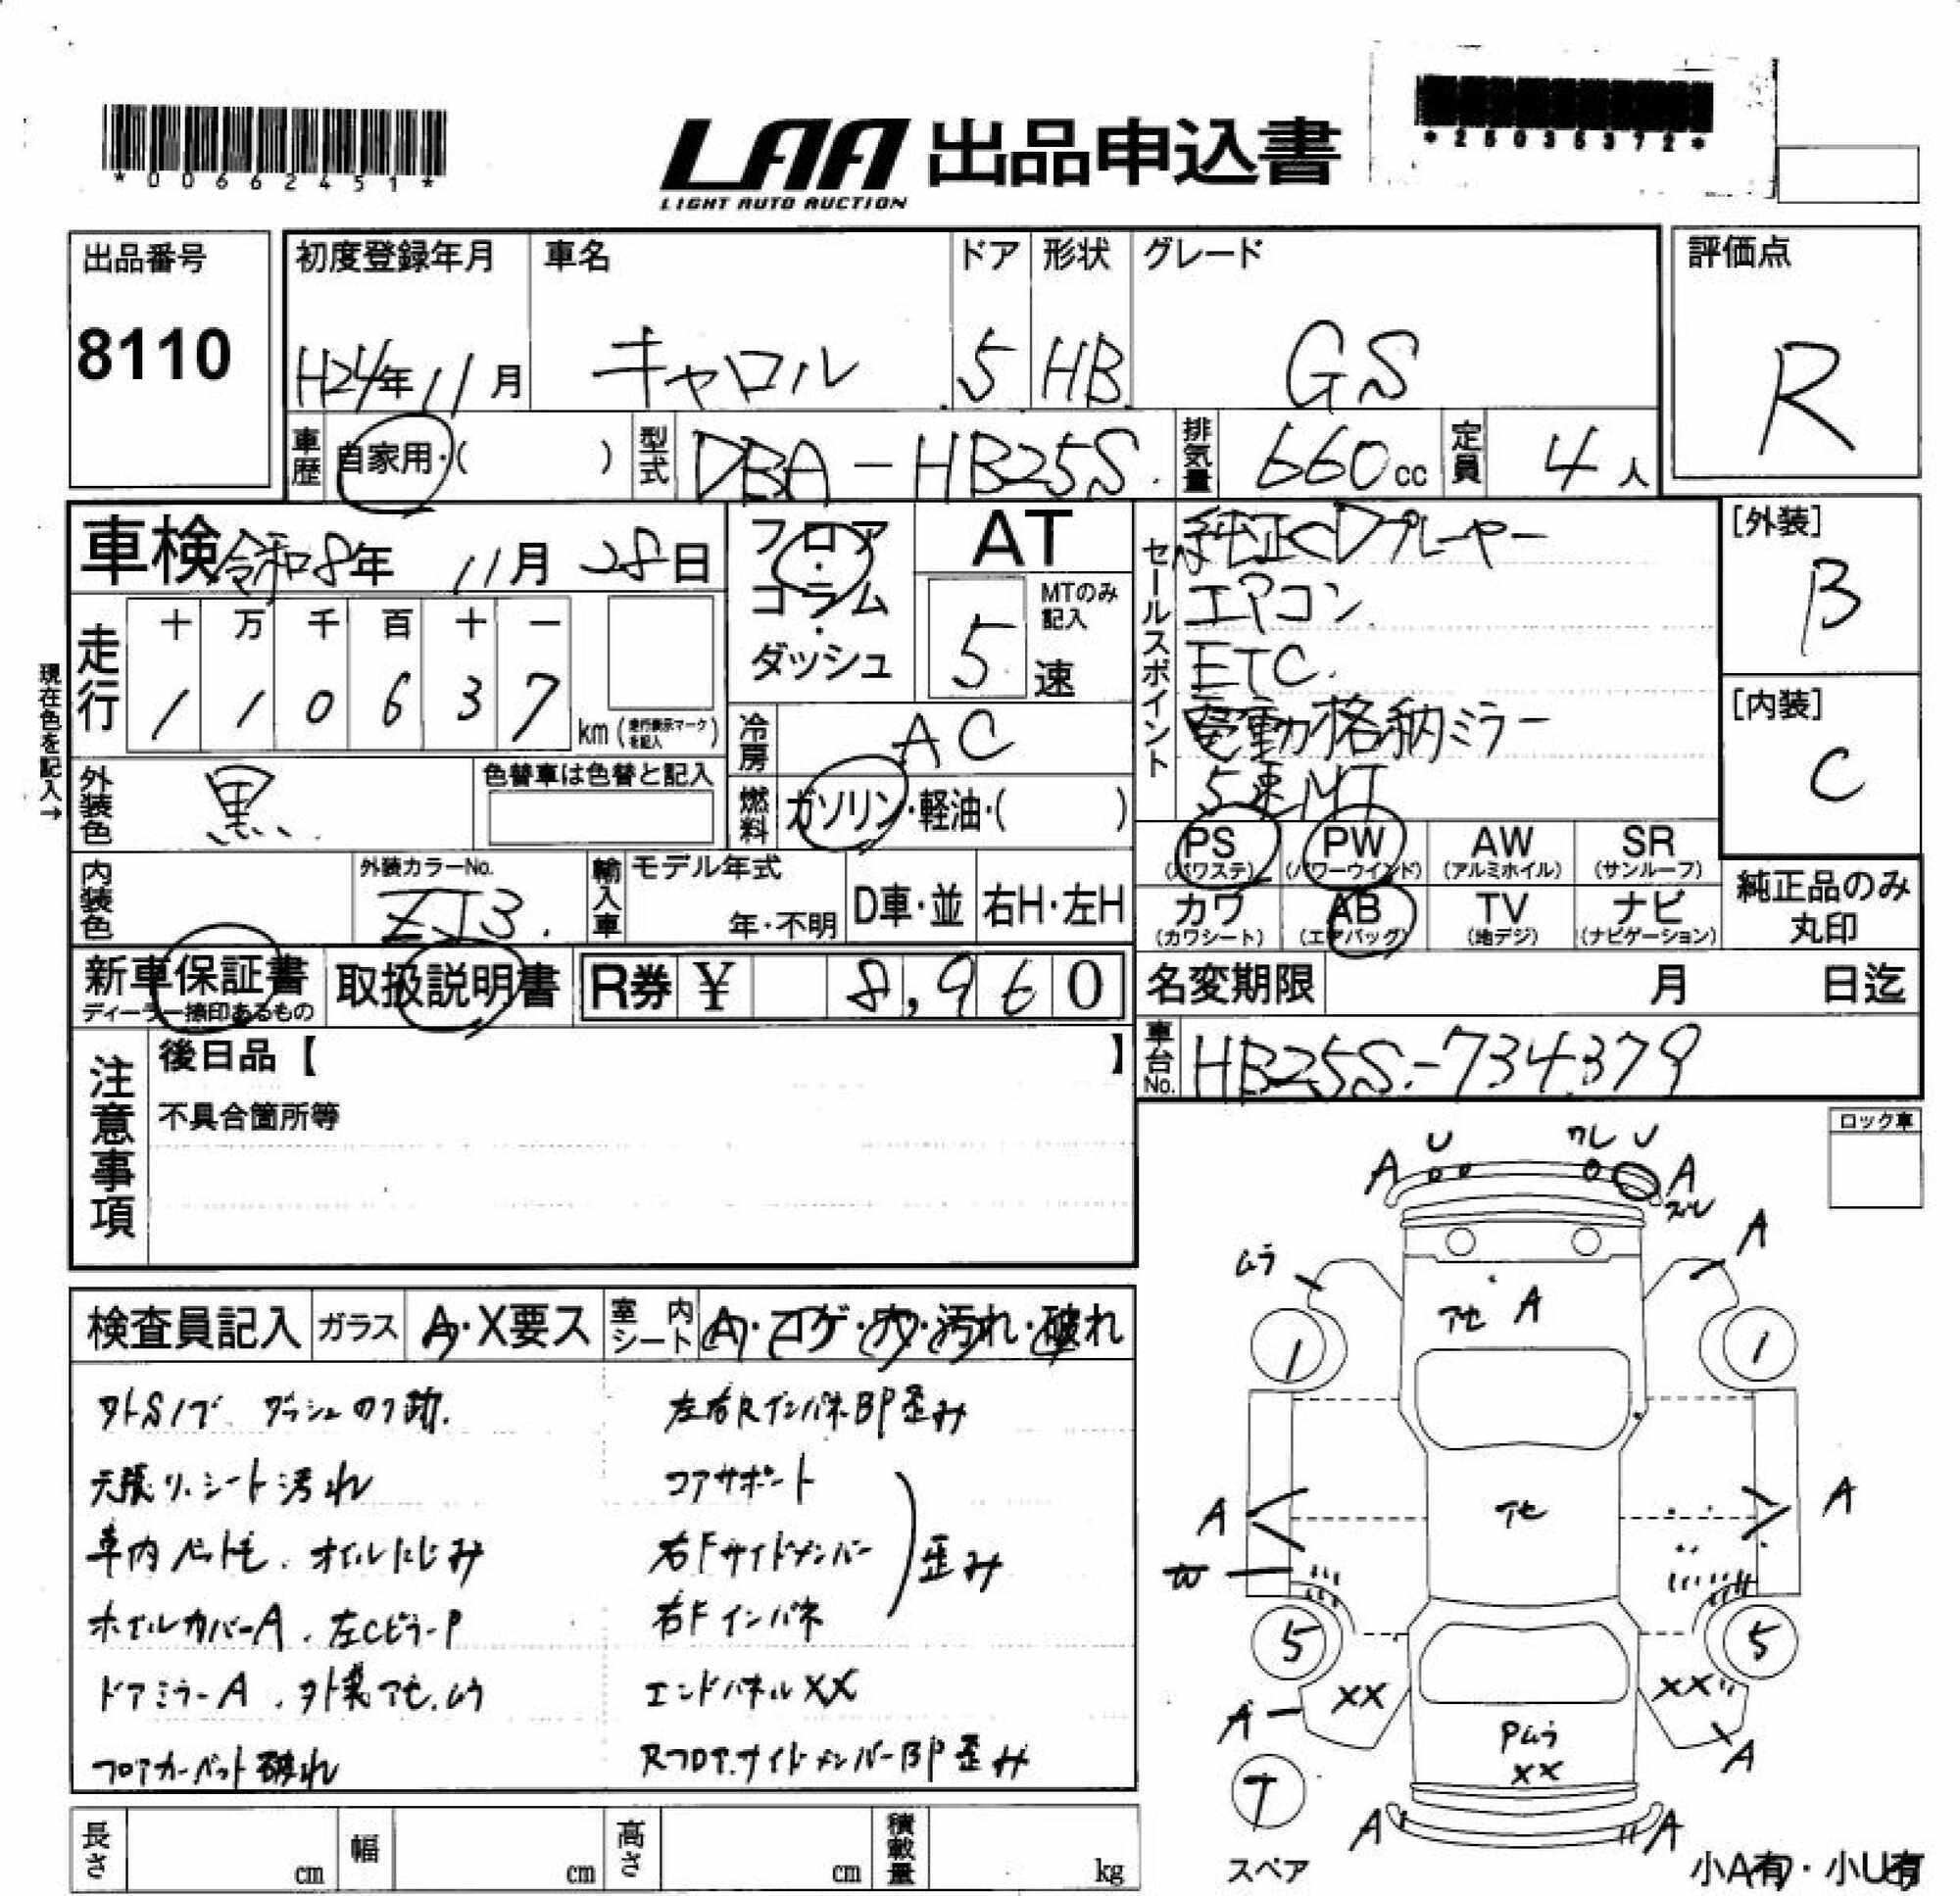 *00662451*
LAA 出品申込書
LIGHT AUTO AUCTION
*25035372*
出品番号
8110
初度登録年月
H24年11月
車名
キャロル
ドア
5
形状
HB
グレード
GS
評価点
R
車歴
自家用・( )
型式
DBA-HB25S
排気量
660cc
定員
4人
車検 令和8年 11月 28日
フロア・コラム・ダッシュ
AT
MTのみ記入
5速
セールスポイント
純正CDプレーヤー
エアコン
ETC
電動格納ミラー
5速MT
[外装]
B
[内装]
C
現在色を記入→
走行
十 万 千 百 十 一
1 1 0 6 3 7 km (走行表示マークを記入)
冷房
AC
外装色
黒
色替車は色替と記入
燃料
ガソリン・軽油・( )
PS (パワステ)
PW (パワーウインド)
AW (アルミホイル)
SR (サンルーフ)
内装色
外装カラーNo.
ZJ3
輸入車
モデル年式
年・不明
D車・並
右H・左H
カワ (カワシート)
AB (エアバッグ)
TV (地デジ)
ナビ (ナビゲーション)
純正品のみ丸印
新車保証書
ディーラー捺印あるもの
取扱説明書
R券 ¥ 8,960
名変期限 月 日迄
車台No.
HB25S-734379
注意事項
後日品【 】
不具合箇所等
ロック車
検査員記入
ガラス
A・X要ス
室内シート
A・コゲ・穴・汚れ・破れ
天張り、シート汚れ
車内ペット毛、オイルにじみ
ホイルカバーA、左CピラーP
ドアミラーA、外装アセ、ムラ
フロアカーペット破れ
左右RインパネBP歪み
コアサポート
右Fサイドメンバー
右Fインパネ
歪み
エンドパネルXX
RフロアサイドメンバーBP歪み
U
ワレ U
A
A
スレ
ムラ
A
アセ A
1
1
A
アセ
A
W
5
5
XX
XX
A
A
Pムラ
XX
T
スペア
A
A
小A有・小U有
長さ cm
幅 cm
高さ cm
積載量 kg